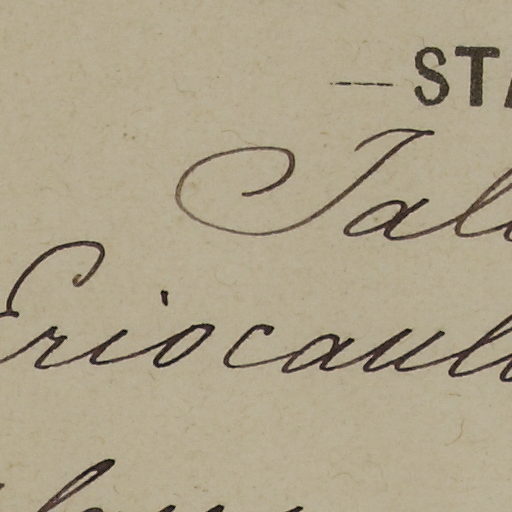 — STA
Jal
Eriocaul